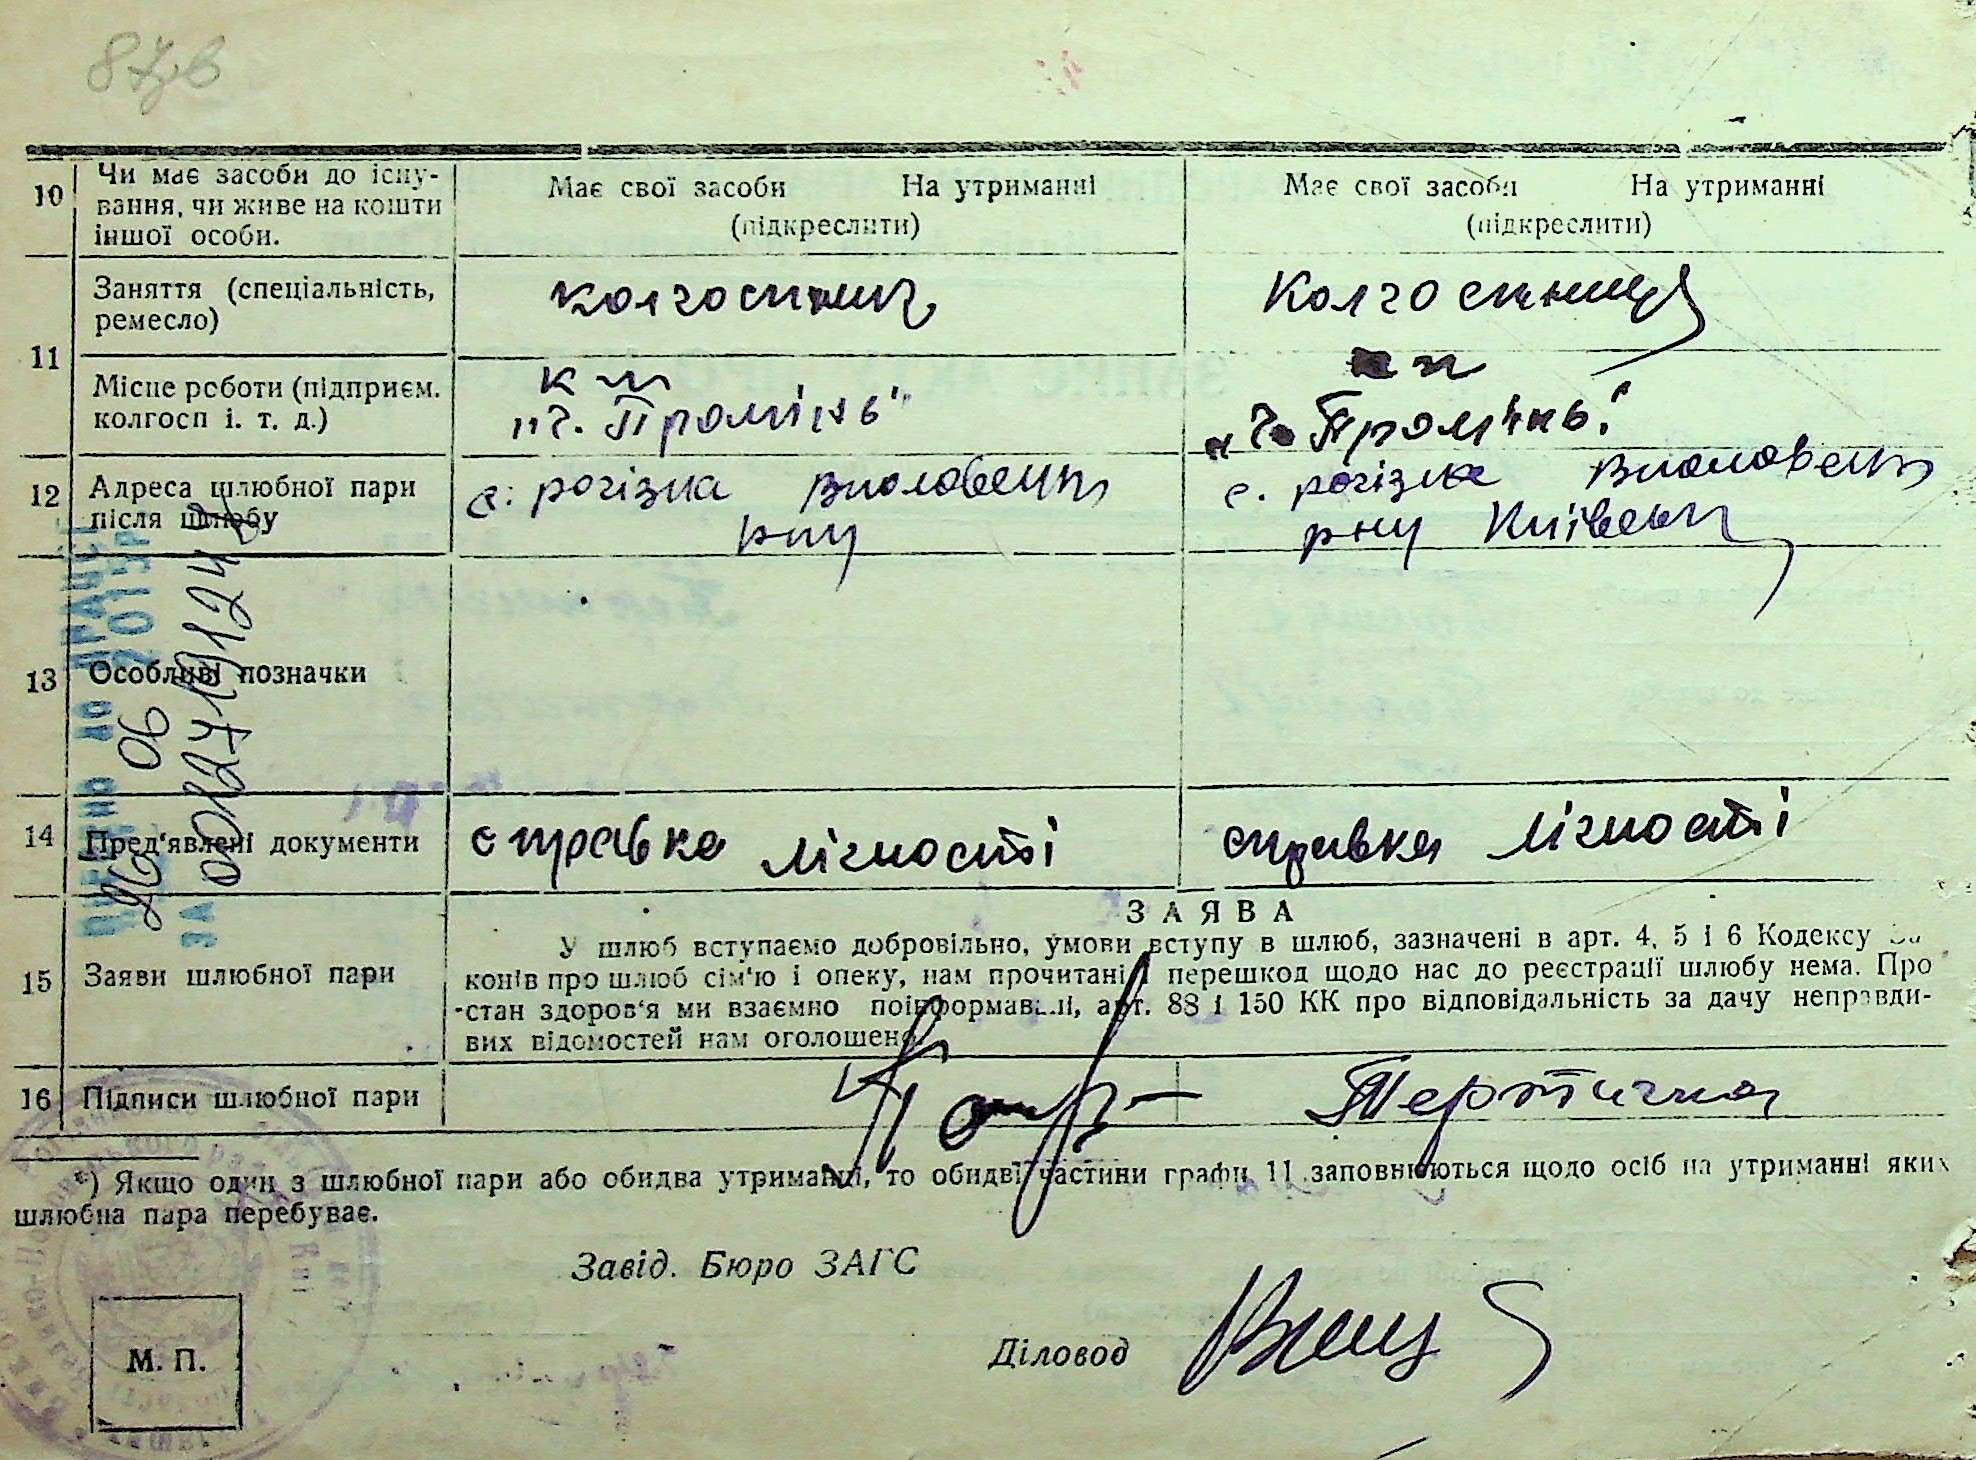 10 Чи має засоби до існу-
вання, чи живе на кошти
іншої особи.
Має свої засоби На утриманні
(підкреслити)
Має свої засоби На утриманні
(підкреслити)
11 Заняття (спеціальність,
ремесло)
колгоспник
Колгоспниця
Місце роботи (підприєм.
колгосп і. т. д.)
к-п
"Ч. Промінь"
"Ч. Промінь"
12 Адреса шлюбної пари
після шлюбу
с. рогізка
рну
с. рогізка
рну Київськ
13 Особливі позначки
26 06
2015 Р
ЗА 00127419124
14 Пред'явлені документи
справка лічності
справка лічності
15 Заяви шлюбної пари
ЗАЯВА
У шлюб вступаємо добровільно, умови вступу в шлюб, зазначені в арт. 4, 5 і 6 Кодексу За
конів про шлюб сім'ю і опеку, нам прочитані і перешкод щодо нас до реєстрації шлюбу нема. Про
-стан здоров'я ми взаємно поінформавані, арт. 88 і 150 КК про відповідальність за дачу неправди-
вих відомостей нам оголошено.
16 Підписи шлюбної пари
Тертична
*) Якщо один з шлюбної пари або обидва утриманці, то обидві частини графи 11 заповнюються щодо осіб на утриманні яких
шлюбна пара перебуває.
Завід. Бюро ЗАГС
Діловод
М. П.